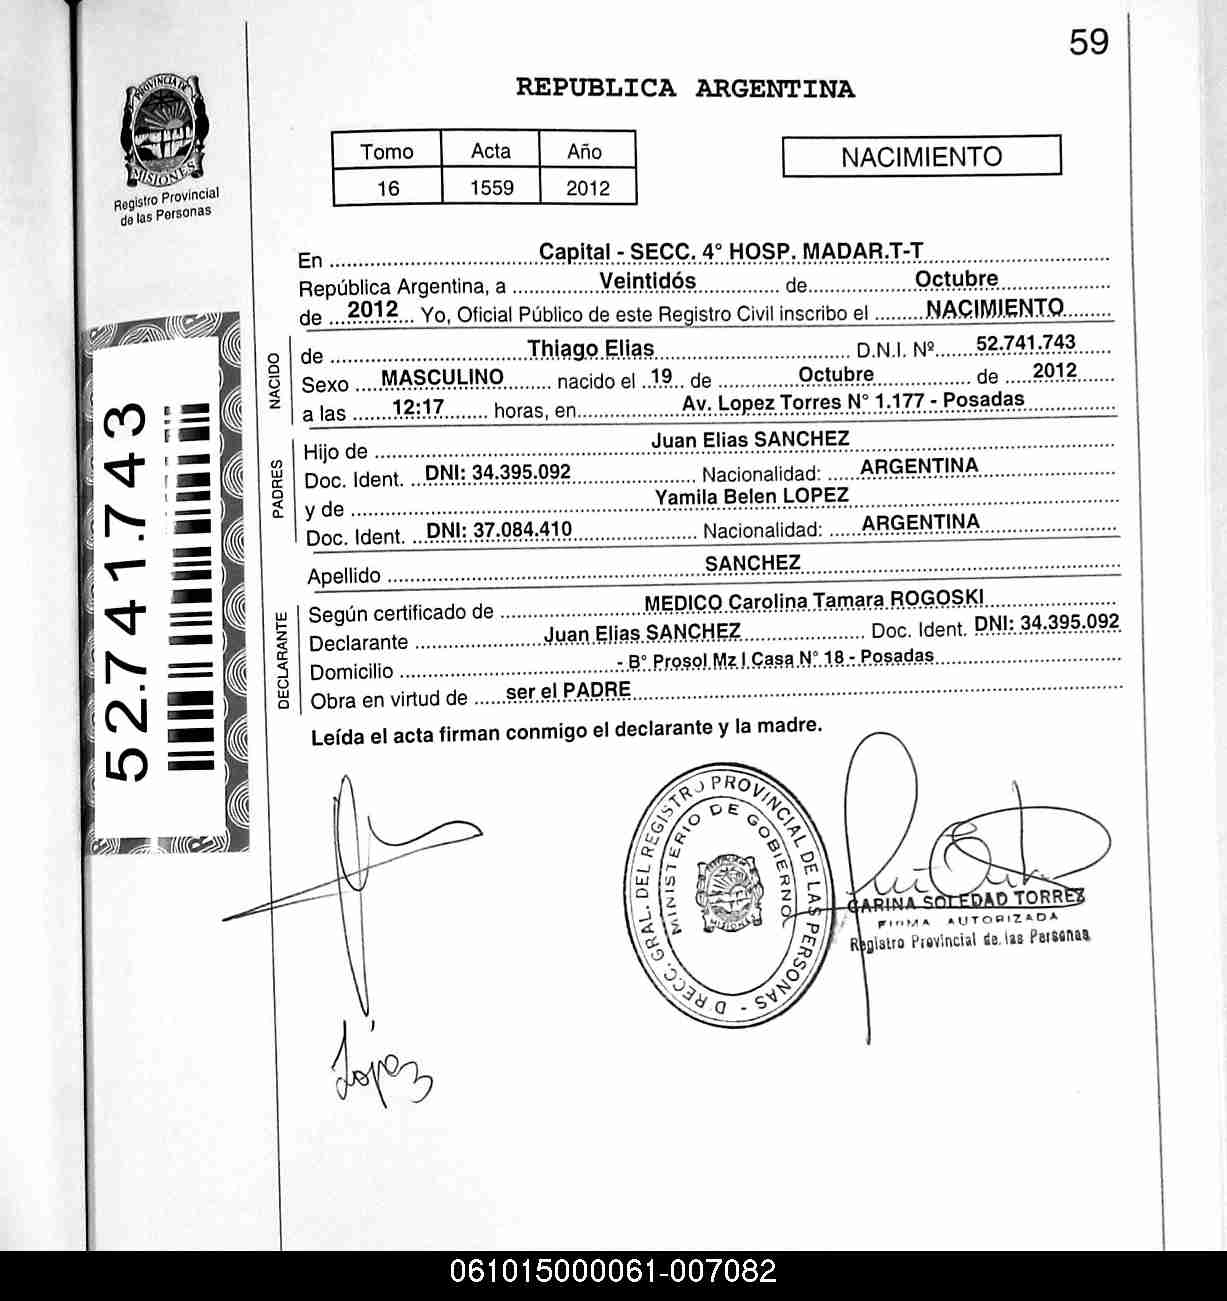 59
REPUBLICA ARGENTINA
PROVINCIA DE
MISIONES
Registro Provincial
de las Personas
Tomo Acta Año
16 1559 2012
NACIMIENTO
En Capital - SECC. 4° HOSP. MADAR.T-T
República Argentina, a Veintidós de Octubre
de 2012 Yo, Oficial Público de este Registro Civil inscribo el NACIMIENTO
NACIDO
de Thiago Elias D.N.I. Nº 52.741.743
Sexo MASCULINO nacido el 19 de Octubre de 2012
a las 12:17 horas, en Av. Lopez Torres N° 1.177 - Posadas
PADRES
Hijo de Juan Elias SANCHEZ
Doc. Ident. DNI: 34.395.092 Nacionalidad: ARGENTINA
y de Yamila Belen LOPEZ
Doc. Ident. DNI: 37.084.410 Nacionalidad: ARGENTINA
Apellido SANCHEZ
DECLARANTE
Según certificado de MEDICO Carolina Tamara ROGOSKI
Declarante Juan Elias SANCHEZ Doc. Ident. DNI: 34.395.092
Domicilio - B° Prosol Mz I Casa N° 18 - Posadas
Obra en virtud de ser el PADRE
Leída el acta firman conmigo el declarante y la madre.
52.741.743
DIRECC. GRAL. DEL REGISTRO PROVINCIAL DE LAS PERSONAS -
MINISTERIO DE GOBIERNO
MISIONES
CARINA SOLEDAD TORREZ
FIRMA AUTORIZADA
Registro Provincial de las Personas
López
061015000061-007082